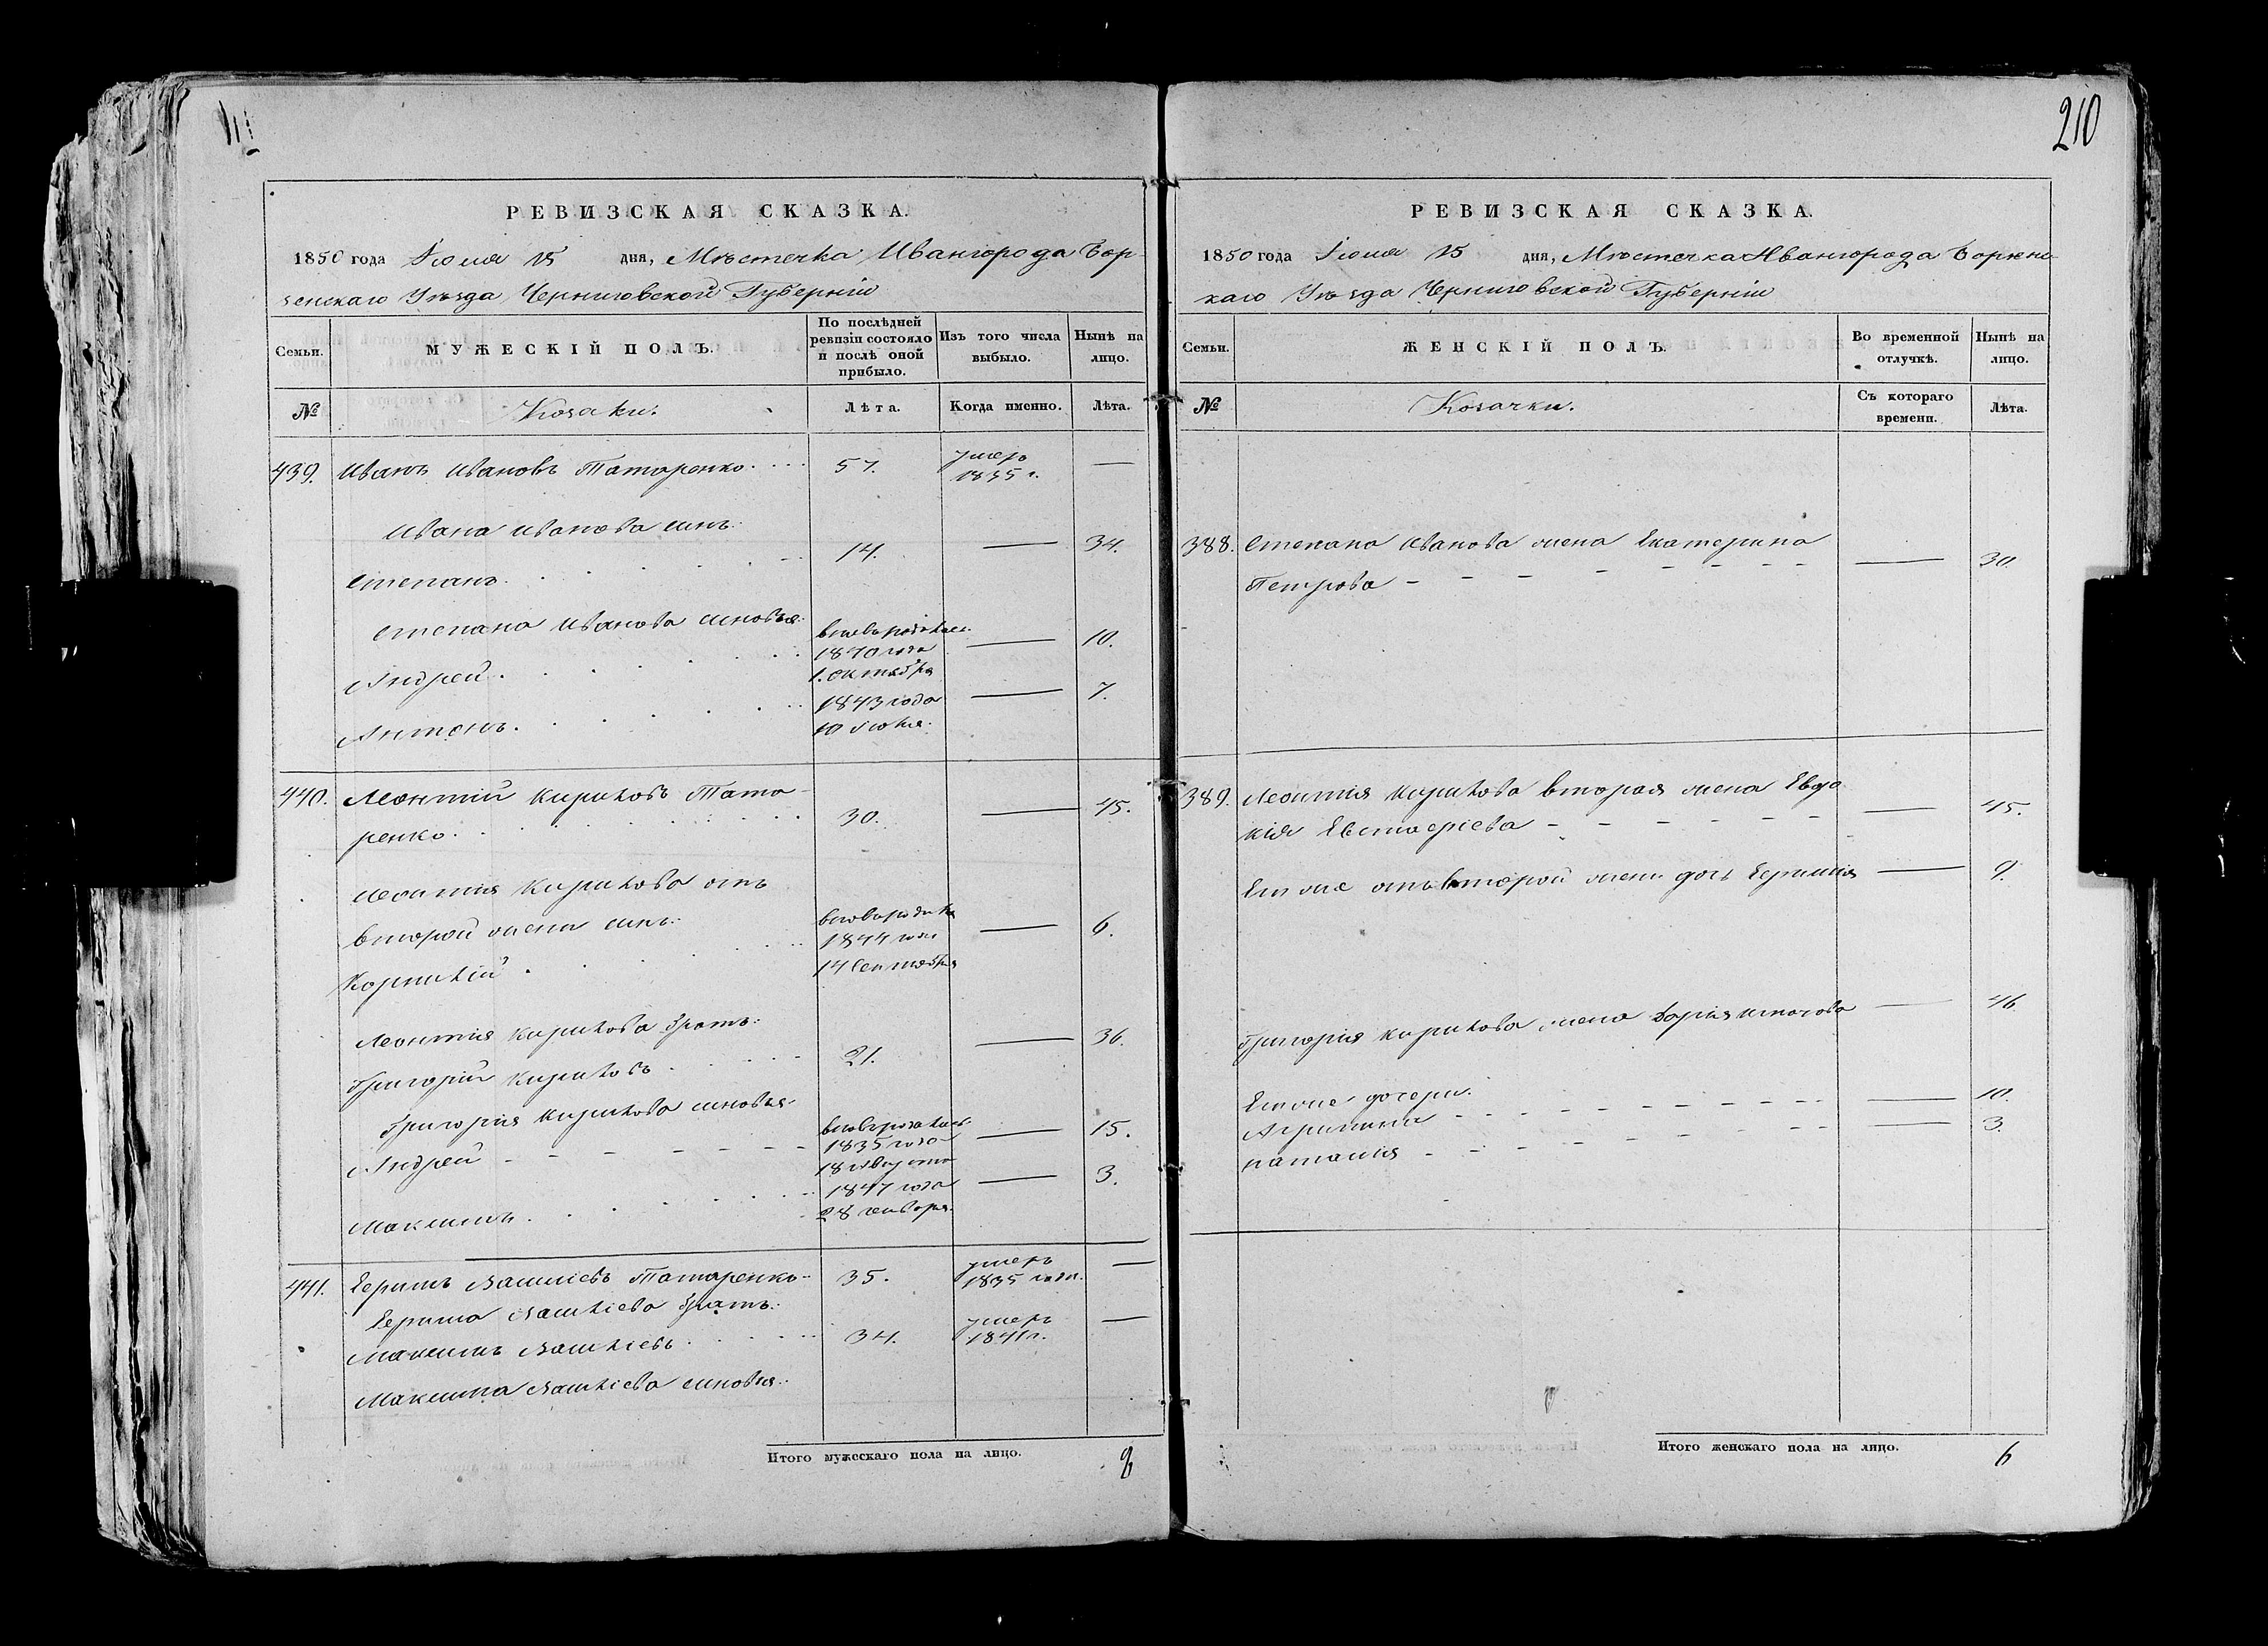 210
РЕВИЗСКАЯ СКАЗКА.
1850 года Іюля 15 дня, Мѣстечка Ивангорода Бор-
зенскаго Уѣзда Черниговской Губерніи
Семьи.
МУЖЕСКІЙ ПОЛЪ.
По послѣдней ревизіи состояло и послѣ оной прибыло.
Изъ того числа выбыло.
Нынѣ на лицо.
№
Козаки.
Лѣта.
Когда именно.
Лѣта.
439. Иванъ Ивановъ Татаренко 57. умеръ 1835 г. —
Ивана Иванова сынъ:
Степанъ 14. — 34.
Степана Иванова сыновья:
Андрей 1840 года 1. октября — 10.
Антонъ. 1843 года 10 Іюля. — 7.
440. Леонтій Кириловъ Тата-
ренко 30. — 45.
Леонтія Кирилова отъ
второй жены сынъ:
Корнилій 1844 года 14 Сентября — 6.
Леонтія Кирилова братъ:
Григорій Кириловъ 21. — 36.
Григорія Кирилова сыновья:
Андрей 1835 года 18 Августа — 15.
Максимъ 1847 года 28 января. — 3.
441. Василіевъ Татаренко 35. умеръ 1835 года. —
Василіева братъ:
Максимъ Василіевъ 34. умеръ 1841 г. —
Максима Василіева сыновья:
Итого мужескаго пола на лицо. 8
РЕВИЗСКАЯ СКАЗКА.
1850 года Іюля 15 дня, Мѣстечка Ивангорода Борзенс-
каго Уѣзда Черниговской Губерніи
Семьи.
ЖЕНСКІЙ ПОЛЪ.
Во временной отлучкѣ.
Нынѣ на лицо.
№
Козачки.
Съ котораго времени.
Лѣта.
388. Степана Иванова жена Екатерина
Петрова — 30
389. Леонтія Кирилова вторая жена Евдо
кія — 45.
Его же отъ второй жены дочь — 9.
Григорія Кирилова жена Дарія — 46
Его же дочери.
— 10.
Наталія — 3.
Итого женскаго пола на лицо. 6